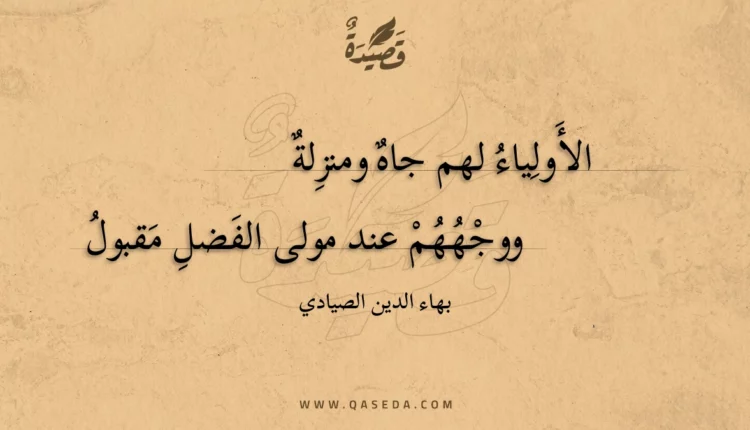 قَصِيْدَةٌ
الأَولِياءُ لهم جاهٌ ومنزِلةٌ
ووجْهُهُمْ عند مولى الفَضلِ مَقبولُ
بهاء الدين الصيادي
WWW.QASEDA.COM